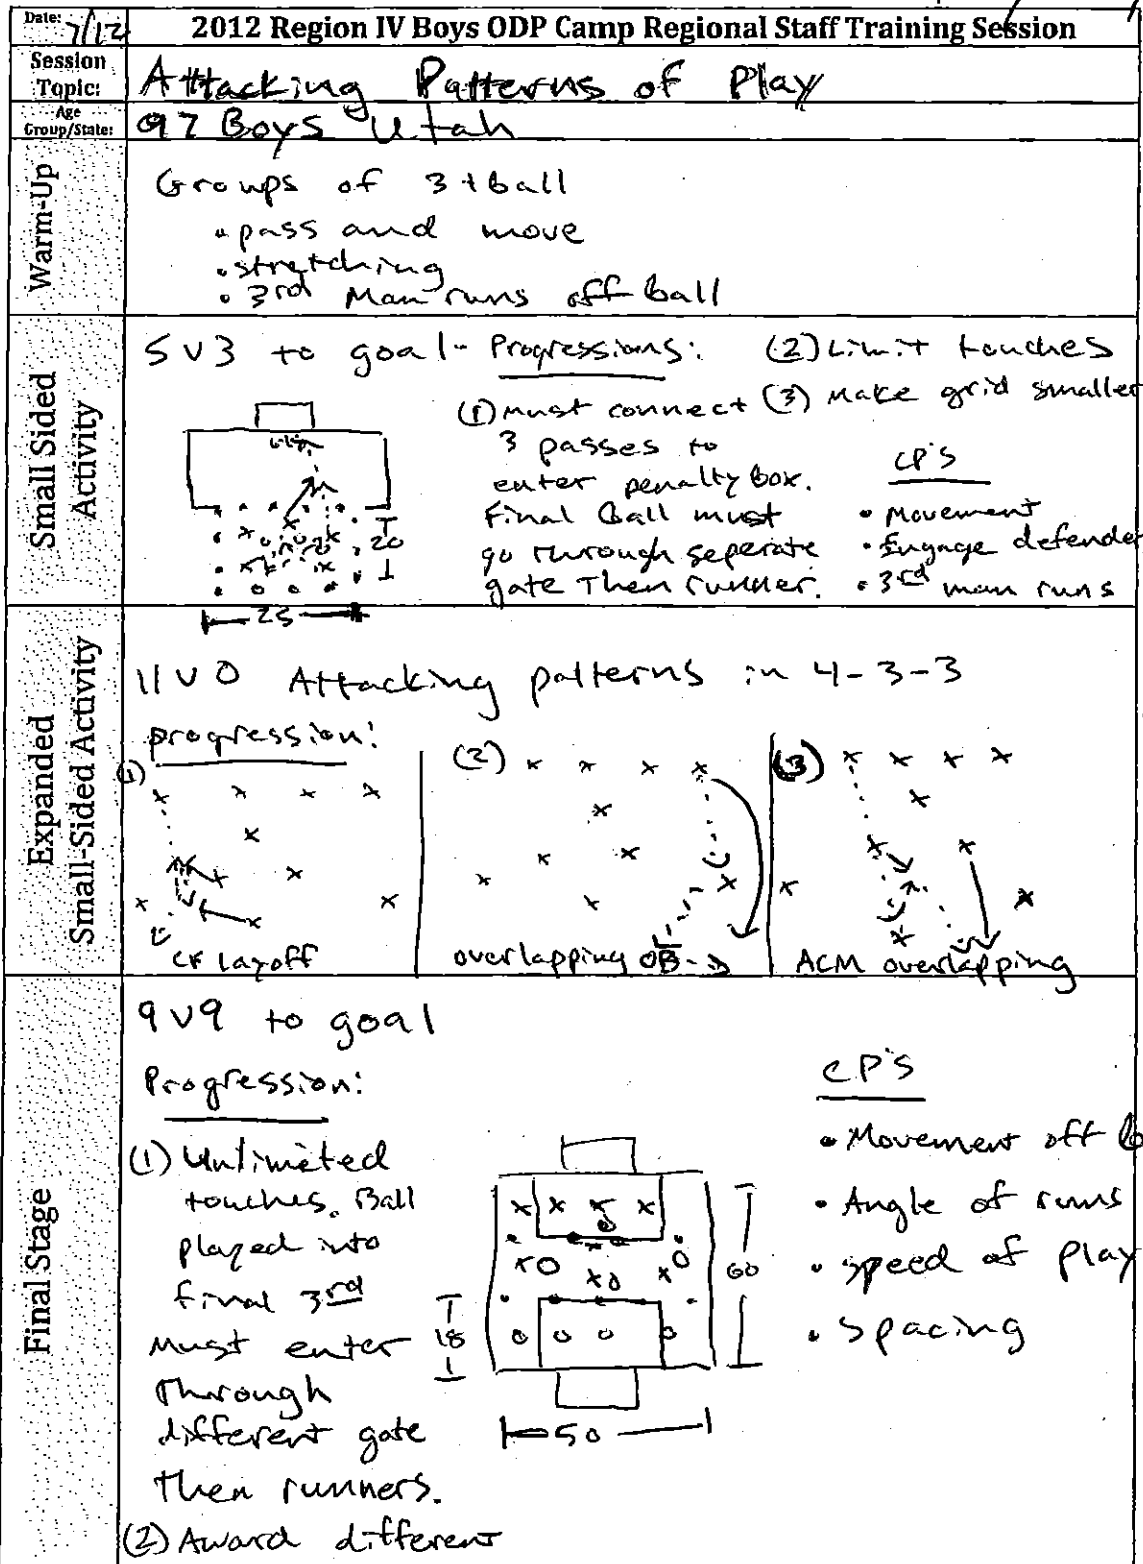 Date: 7/12
2012 Region IV Boys ODP Camp Regional Staff Training Session
Session Topic: Attacking Patterns of Play
Age Group/State: 97 Boys Utah
Warm-Up
Groups of 3 + ball
• pass and move
• stretching
• 3rd Man runs off ball
Small Sided Activity
5v3 to goal - Progressions:
(1) Must connect
3 passes to
enter penalty box.
Final Ball must
go through seperate
gate then runner.
(2) Limit touches
(3) Make grid smaller
CP's
• Movement
• Engage defender
• 3rd man runs
20
25
Expanded Small-Sided Activity
11v0 Attacking patterns in 4-3-3
progression:
(1)
CF layoff
(2)
overlapping OB
(3)
ACM overlapping
Final Stage
9v9 to goal
Progression:
(1) Unlimited
touches. Ball
played into
final 3rd
Must enter
through
different gate
then runners.
(2) Award different
18
60
50
CP's
• Movement off b
• Angle of runs
• speed of play
• Spacing